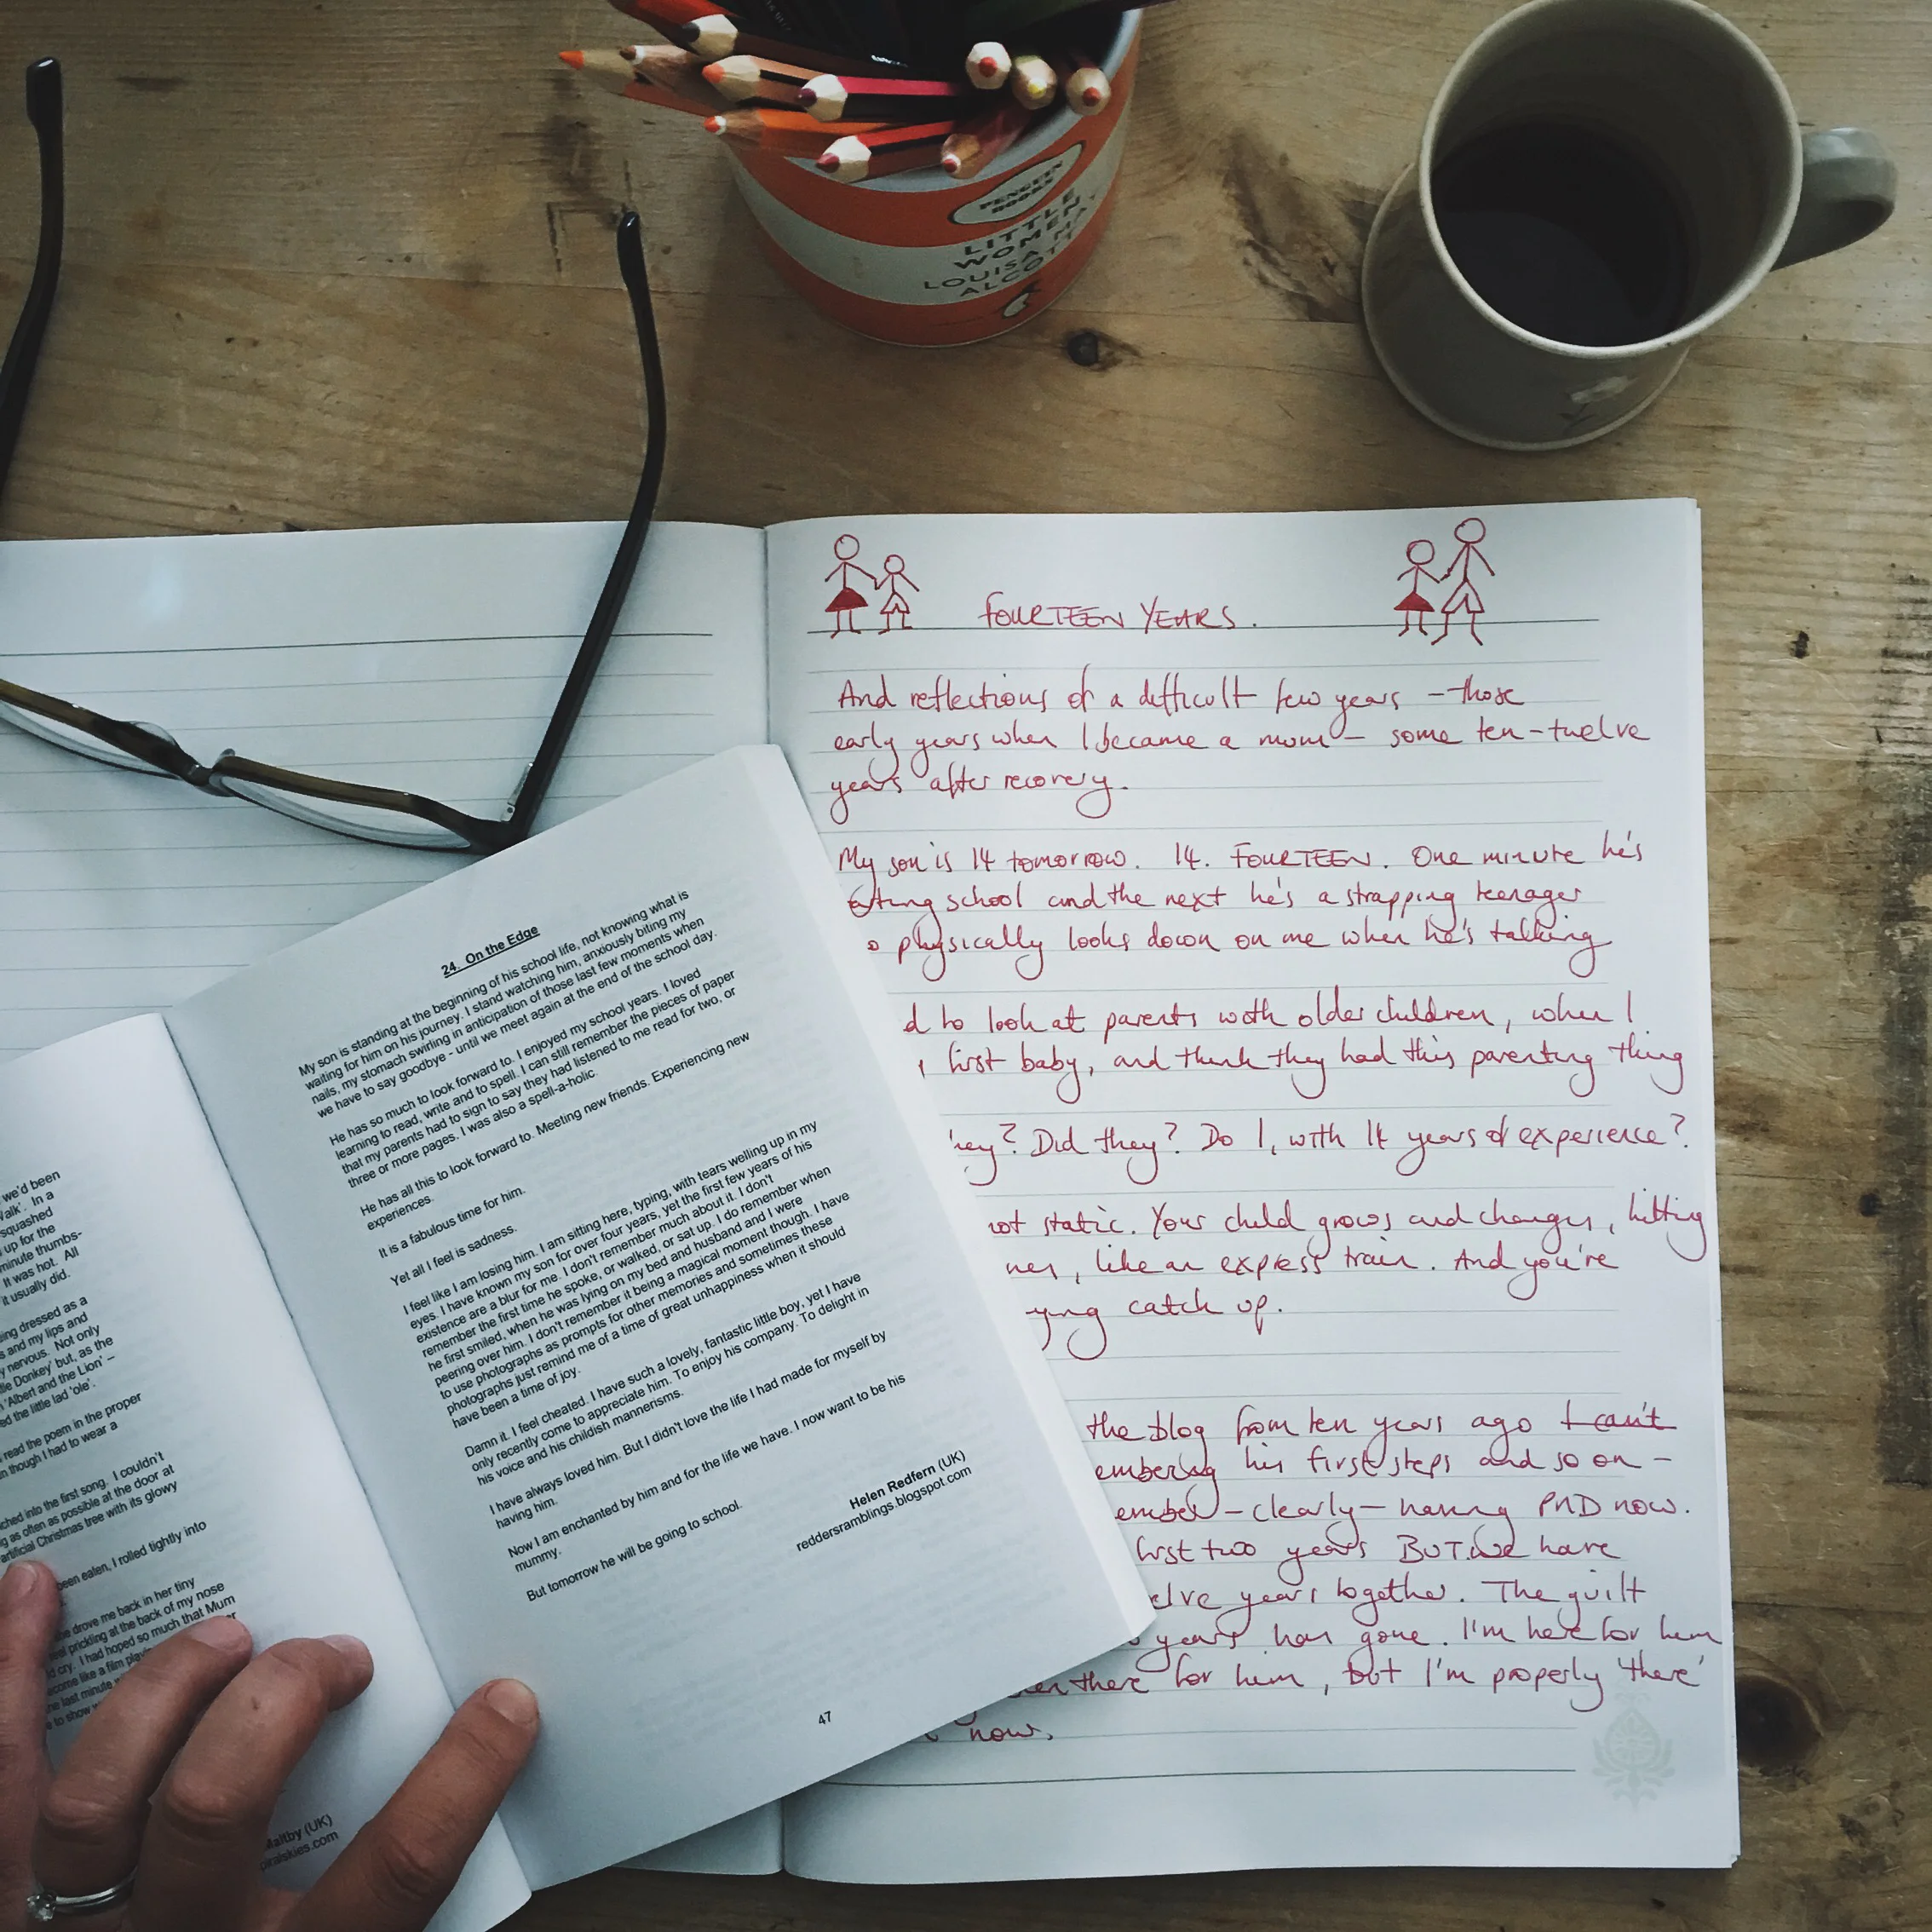 PENGUIN
BOOKS
LITTLE
WOMEN
LOUISA MAY
ALCOTT
FOURTEEN YEARS.
And reflections of a difficult few years - those
early years when I became a mum - some ten-twelve
years after recovery.
My son is 14 tomorrow. 14. FOURTEEN. One minute he's
school and the next he's a strapping teenager
physically looks down on me when he's talking
d to look at parents with older children, when I
first baby, and think they had this parenting thing
hey? Did they? Do I, with 14 years of experience?
not static. Your child grows and changes, hitting
like an express train. And you're
ying catch up.
the blog from ten years ago I can't
embering his first steps and so on -
ember - clearly - having PND now.
first two years BUT we have
elve years together. The guilt
years has gone. I'm here for him
there for him, but I'm properly 'there'
now.
24. On the Edge
My son is standing at the beginning of his school life, not knowing what is
waiting for him on his journey. I stand watching him, anxiously biting my
nails, my stomach swirling in anticipation of those last few moments when
we have to say goodbye - until we meet again at the end of the school day.
He has so much to look forward to. I enjoyed my school years. I loved
learning to read, write and to spell. I can still remember the pieces of paper
that my parents had to sign to say they had listened to me read for two, or
three or more pages. I was also a spell-a-holic.
He has all this to look forward to. Meeting new friends. Experiencing new
experiences.
It is a fabulous time for him.
Yet all I feel is sadness.
I feel like I am losing him. I am sitting here, typing, with tears welling up in my
eyes. I have known my son for over four years, yet the first few years of his
existence are a blur for me. I don't remember much about it. I don't
remember the first time he spoke, or walked, or sat up. I do remember when
he first smiled, when he was lying on my bed and husband and I were
peering over him. I don't remember it being a magical moment though. I have
to use photographs as prompts for other memories and sometimes these
photographs just remind me of a time of great unhappiness when it should
have been a time of joy.
Damn it. I feel cheated. I have such a lovely, fantastic little boy, yet I have
only recently come to appreciate him. To enjoy his company. To delight in
his voice and his childish mannerisms.
I have always loved him. But I didn't love the life I had made for myself by
having him.
Now I am enchanted by him and for the life we have. I now want to be his
mummy.
But tomorrow he will be going to school.
Helen Redfern (UK)
reddersramblings.blogspot.com
47
we'd been
alk'. In a
squashed
up for the
minute thumbs-
It was hot. All
it usually did.
ing dressed as a
s and my lips and
nervous. Not only
tle Donkey' but, as the
'Albert and the Lion' –
ed the little lad 'ole'.
read the poem in the proper
n though I had to wear a
ched into the first song. I couldn't
g as often as possible at the door at
artificial Christmas tree with its glowy
been eaten, I rolled tightly into
she drove me back in her tiny
eel prickling at the back of my nose
d cry. I had hoped so much that Mum
ecome like a film
the last minute
to show
Maltby (UK)
piralskies.com